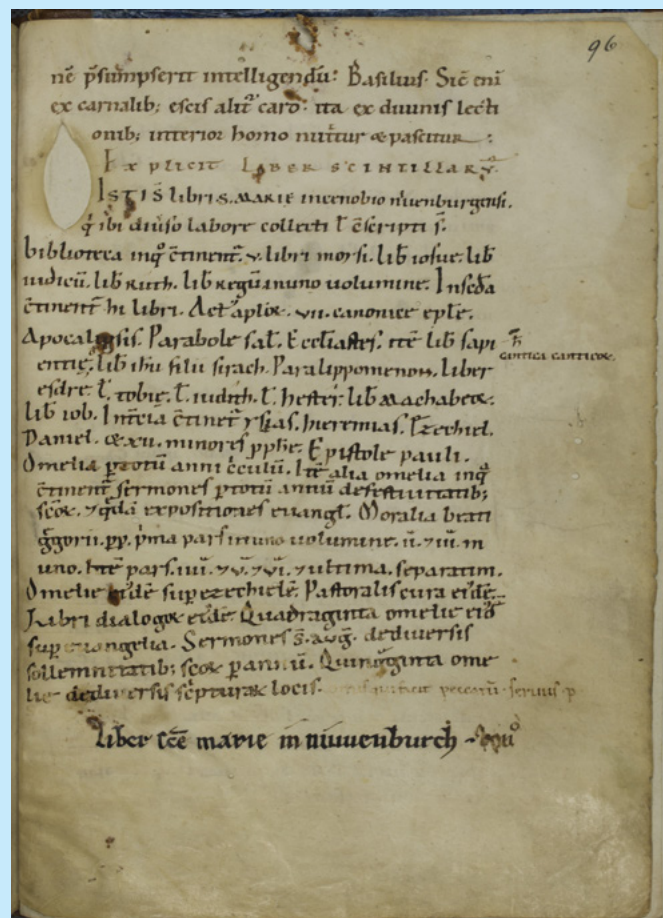 96
nē p̄sumpserit intelligendū: Basilius. Sic̄ eni
ex carnalib; escis alit̄ caro: ita ex diuinis lecti
onib; interior homo nutritur & pascitur:
Explicit Liber scintillarū.
Isti s̄ libri s. Marie in cenobio niuenburgensi.
q̄ ibi diuiso labore collecti ł c̄scripti s̄.
biblioteca in q̄ c̄tinent̄. v. libri moysi. lib̄ iosue. lib̄
iudicū. lib̄ Ruth. lib̄ Regū in uno uolumine. In sc̄da
c̄tinent̄ hi libri. Act' aplōꝝ. vii. canonice eplē.
Apocalipsis. Parabole sal̄. Eccl̄iastes. itē lib̄ sapi
cantica canticoꝝ.
entię. lib̄ ihū filii sirach. Paralippomenon. liber
esdrę. ł. tobie. ł. iudith. ł. hester. lib̄ Machabeoꝝ.
lib̄ iob. In t̄cia c̄tinet̄ ysaias. hieremias. Ezechiel.
Daniel. & xii. minores pph̄e. Epistole pauli.
Omelia p̱ totū anni c̄culū. Itē alia omelia in q̄
c̄tinent̄ sermones p̱ totū annū de festiuitatib;
sc̄oꝝ. ⁊ q̄dā expositiones euangł. Moralia beati
gḡorii. pp. p̄ma pars in uno uolumine. ii. ⁊ iii. in
uno. Itē pars. iiii. ⁊ v. ⁊ vi. ⁊ ultima. separatim.
Omelie eiʾdē sup̱ ezechielē. Pastoralis cura eiʾdē.
Libri dialogoꝝ eiʾdē. Quadraginta omelie eiʾdē
sup̱ euangelia. Sermones s̄. auḡ. de diuersis
sollemnitatib; sc̄oꝝ p̱ annū. Quinq̄ginta ome
lie de diuersis sc̄pturaꝝ locis.
Liber sc̄e marie in niuuenburch